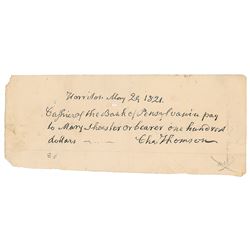 Harriton May 26, 1821.
Cashier of the Bank of Pensylvania pay
to Mary Wheeler or bearer one hundred
dollars — — — Cha Thomson